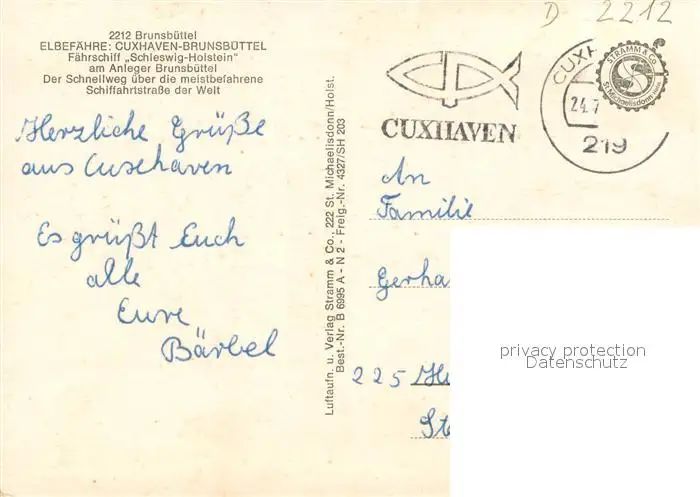 D 2212
2212 Brunsbüttel
ELBEFÄHRE: CUXHAVEN-BRUNSBÜTTEL
Fährschiff „Schleswig-Holstein"
am Anleger Brunsbüttel
Der Schnellweg über die meistbefahrene
Schiffahrtstraße der Welt
Herzliche Grüße
aus Cuxhaven
Es grüßt Euch
alle
Eure
Bärbel
Luftaufn. u. Verlag Stramm & Co., 222 St. Michaelisdonn/Holst.
Best.-Nr. B 6995 A - N 2 - Freig.-Nr. 4327/SH 203
CUXHAVEN
CUXH
24.7
219
STRAMM & CO.
St. Michaelisdonn
An
Familie
Gerha
225 He
St
privacy protection
Datenschutz